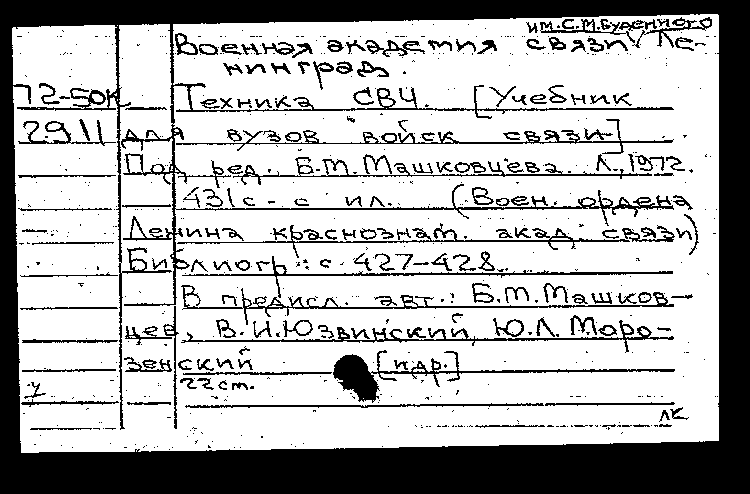 им. С.М.Буденного
Военная академия связи Ле-
нинград.
72-50К Техника СВЧ. [Учебник
2911 для вузов войск связи]
Под ред. Б.М.Машковцева. Л., 1972.
431с. с ил. (Воен. ордена
Ленина краснознам. акад. связи)
Библиогр.: с. 427-428.
В предисл. авт.: Б.М.Машков-
цев, В.И.Юзвинский, Ю.Л. Моро-
зенский [и др.]
22 см.
ЛК